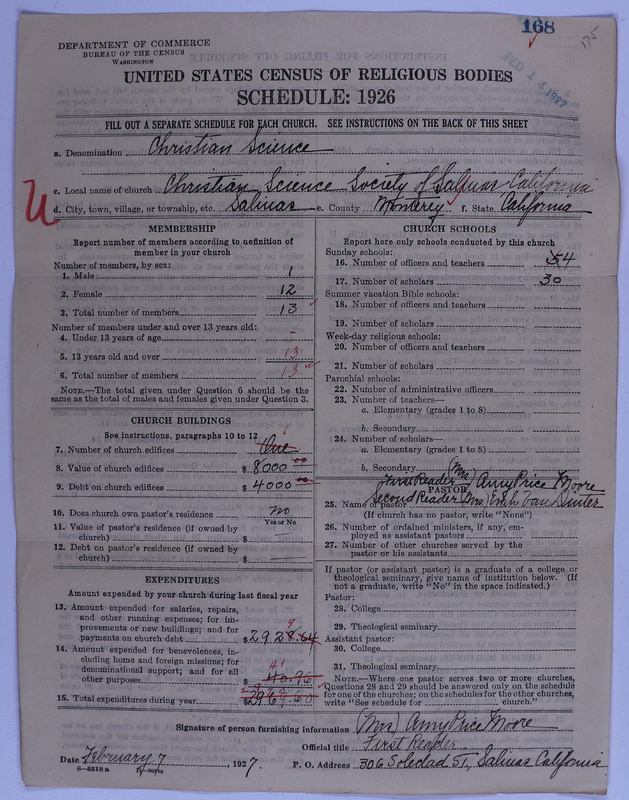 168
175
DEPARTMENT OF COMMERCE
BUREAU OF THE CENSUS
WASHINGTON
FEB 14 1927
UNITED STATES CENSUS OF RELIGIOUS BODIES
SCHEDULE: 1926
FILL OUT A SEPARATE SCHEDULE FOR EACH CHURCH. SEE INSTRUCTIONS ON THE BACK OF THIS SHEET
a. Denomination Christian Science
c. Local name of church Christian Science Society of Salinas California
U
d. City, town, village, or township, etc. Salinas e. County Monterey f. State California
MEMBERSHIP
Report number of members according to definition of
member in your church
Number of members, by sex:
1. Male 1
2. Female 12
3. Total number of members 13
Number of members under and over 13 years old:
4. Under 13 years of age –
5. 13 years old and over 13
6. Total number of members 13
NOTE.—The total given under Question 6 should be the
same as the total of males and females given under Question 3.
CHURCH BUILDINGS
See instructions, paragraphs 10 to 12
7. Number of church edifices One 1
8. Value of church edifices $ 8000 00
9. Debt on church edifices $ 4000 00
10. Does church own pastor's residence no
Yes or No
11. Value of pastor's residence (if owned by
church) $
12. Debt on pastor's residence (if owned by
church) $
EXPENDITURES
Amount expended by your church during last fiscal year
13. Amount expended for salaries, repairs,
and other running expenses; for im-
provements or new buildings; and for
payments on church debt $ 2928.64 9
14. Amount expended for benevolences, in-
cluding home and foreign missions; for
denominational support; and for all
other purposes $ 40.96 41
15. Total expenditures during year $ 2969.60
CHURCH SCHOOLS
Report here only schools conducted by this church
Sunday schools:
16. Number of officers and teachers 54
17. Number of scholars 30
Summer vacation Bible schools:
18. Number of officers and teachers
19. Number of scholars
Week-day religious schools:
20. Number of officers and teachers
21. Number of scholars
Parochial schools:
22. Number of administrative officers
23. Number of teachers—
a. Elementary (grades 1 to 8)
b. Secondary
24. Number of scholars—
a. Elementary (grades 1 to 8)
b. Secondary
First Reader (Mrs) Amy Price Moore
PASTOR
Second Reader (Mrs) Van
25. Name of pastor
(If church has no pastor, write "None")
26. Number of ordained ministers, if any, em-
ployed as assistant pastors
27. Number of other churches served by the
pastor or his assistants
If pastor (or assistant pastor) is a graduate of a college or
theological seminary, give name of institution below. (If
not a graduate, write "No" in the space indicated.)
Pastor:
28. College
29. Theological seminary
Assistant pastor:
30. College
31. Theological seminary
NOTE.—Where one pastor serves two or more churches,
Questions 28 and 29 should be answered only on the schedule
for one of the churches; on the schedules for the other churches,
write "See schedule for church."
Signature of person furnishing information (Mrs) Amy Price Moore
Official title First Reader
Date February 7, 1927. P. O. Address 306 Soledad St, Salinas California
8—5518 a